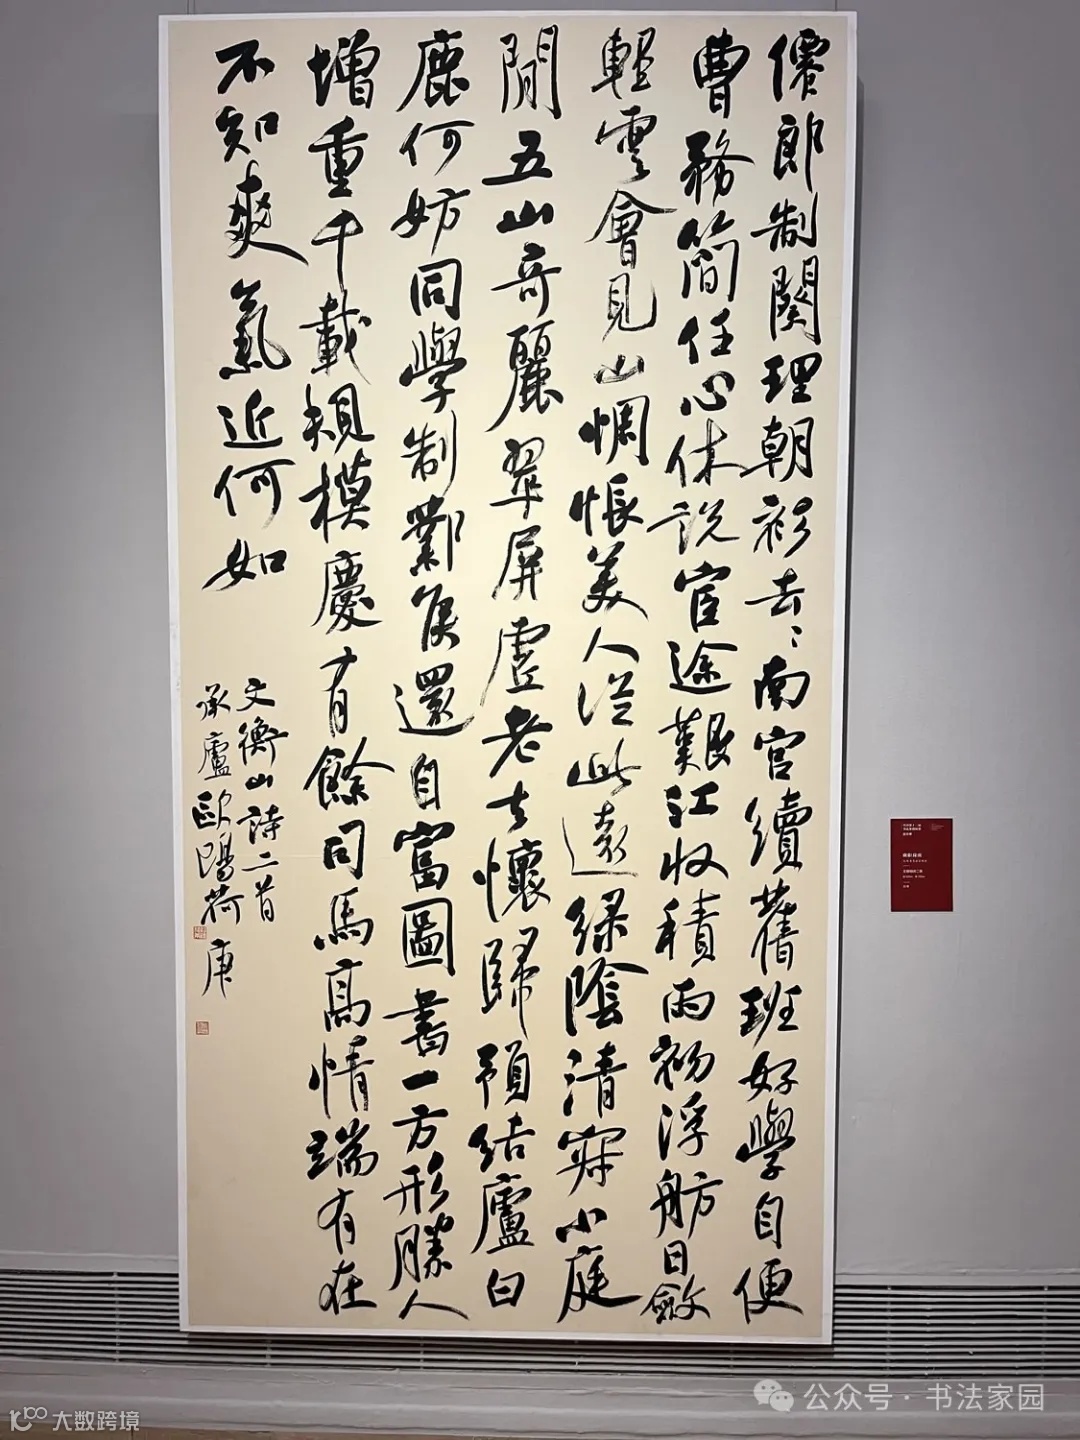 僊郎制闋理朝衫去〻南宮續舊班好學自便
曹務簡任心休說宦途艱江收積雨初浮舫日斂
輕雲會見山惆悵美人從此遠綠陰清寂小庭
閒五山奇麗翠屏虛老去懷歸預結廬白
鹿何妨同學制酇侯還自富圖書一方形勝人
增重千載規模慶有餘司馬高情端有在
不知爽氣近何如
文衡山詩二首
承廬歐陽荷庚
公众号 · 书法家园
大数跨境